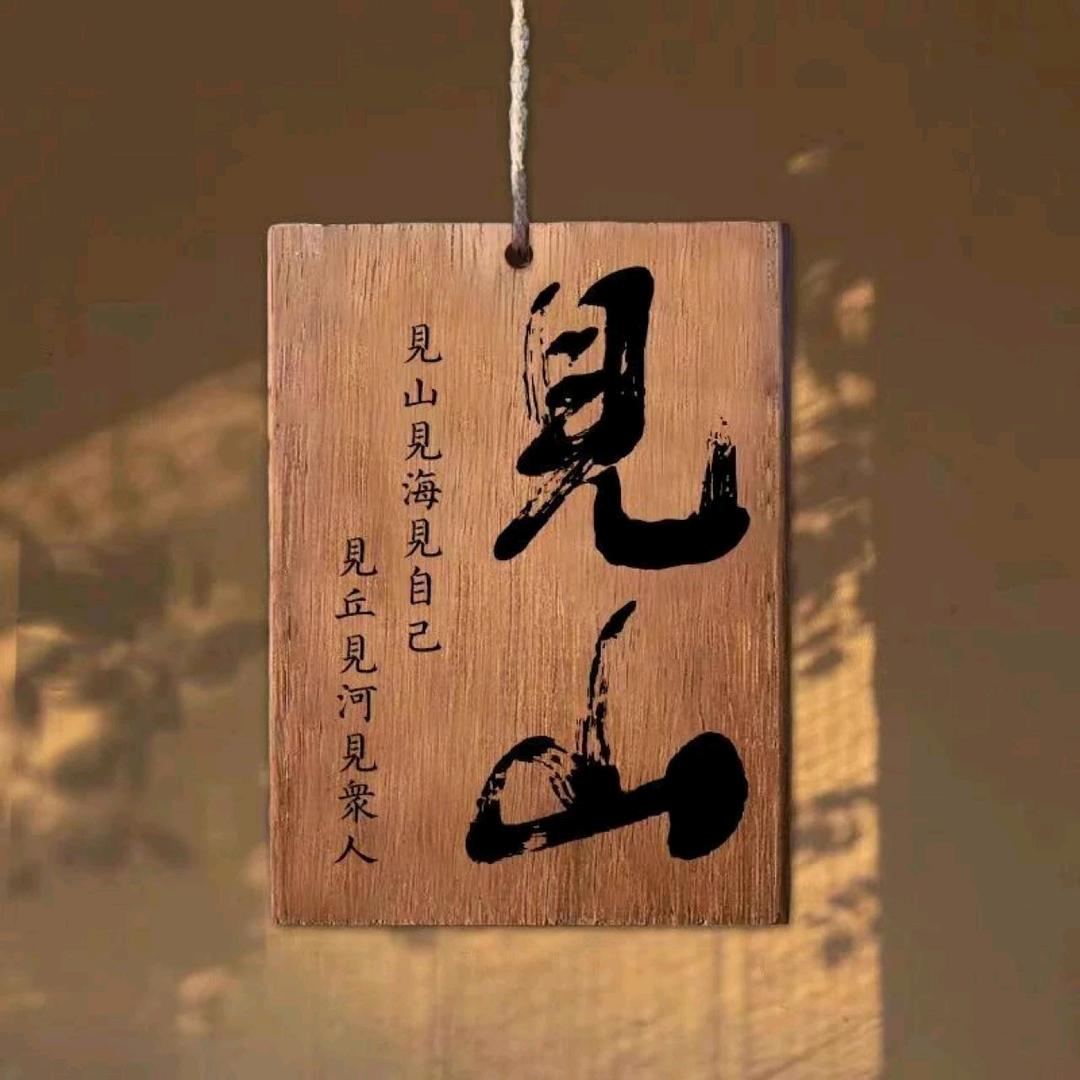 見山
見山見海見自己
見丘見河見衆人